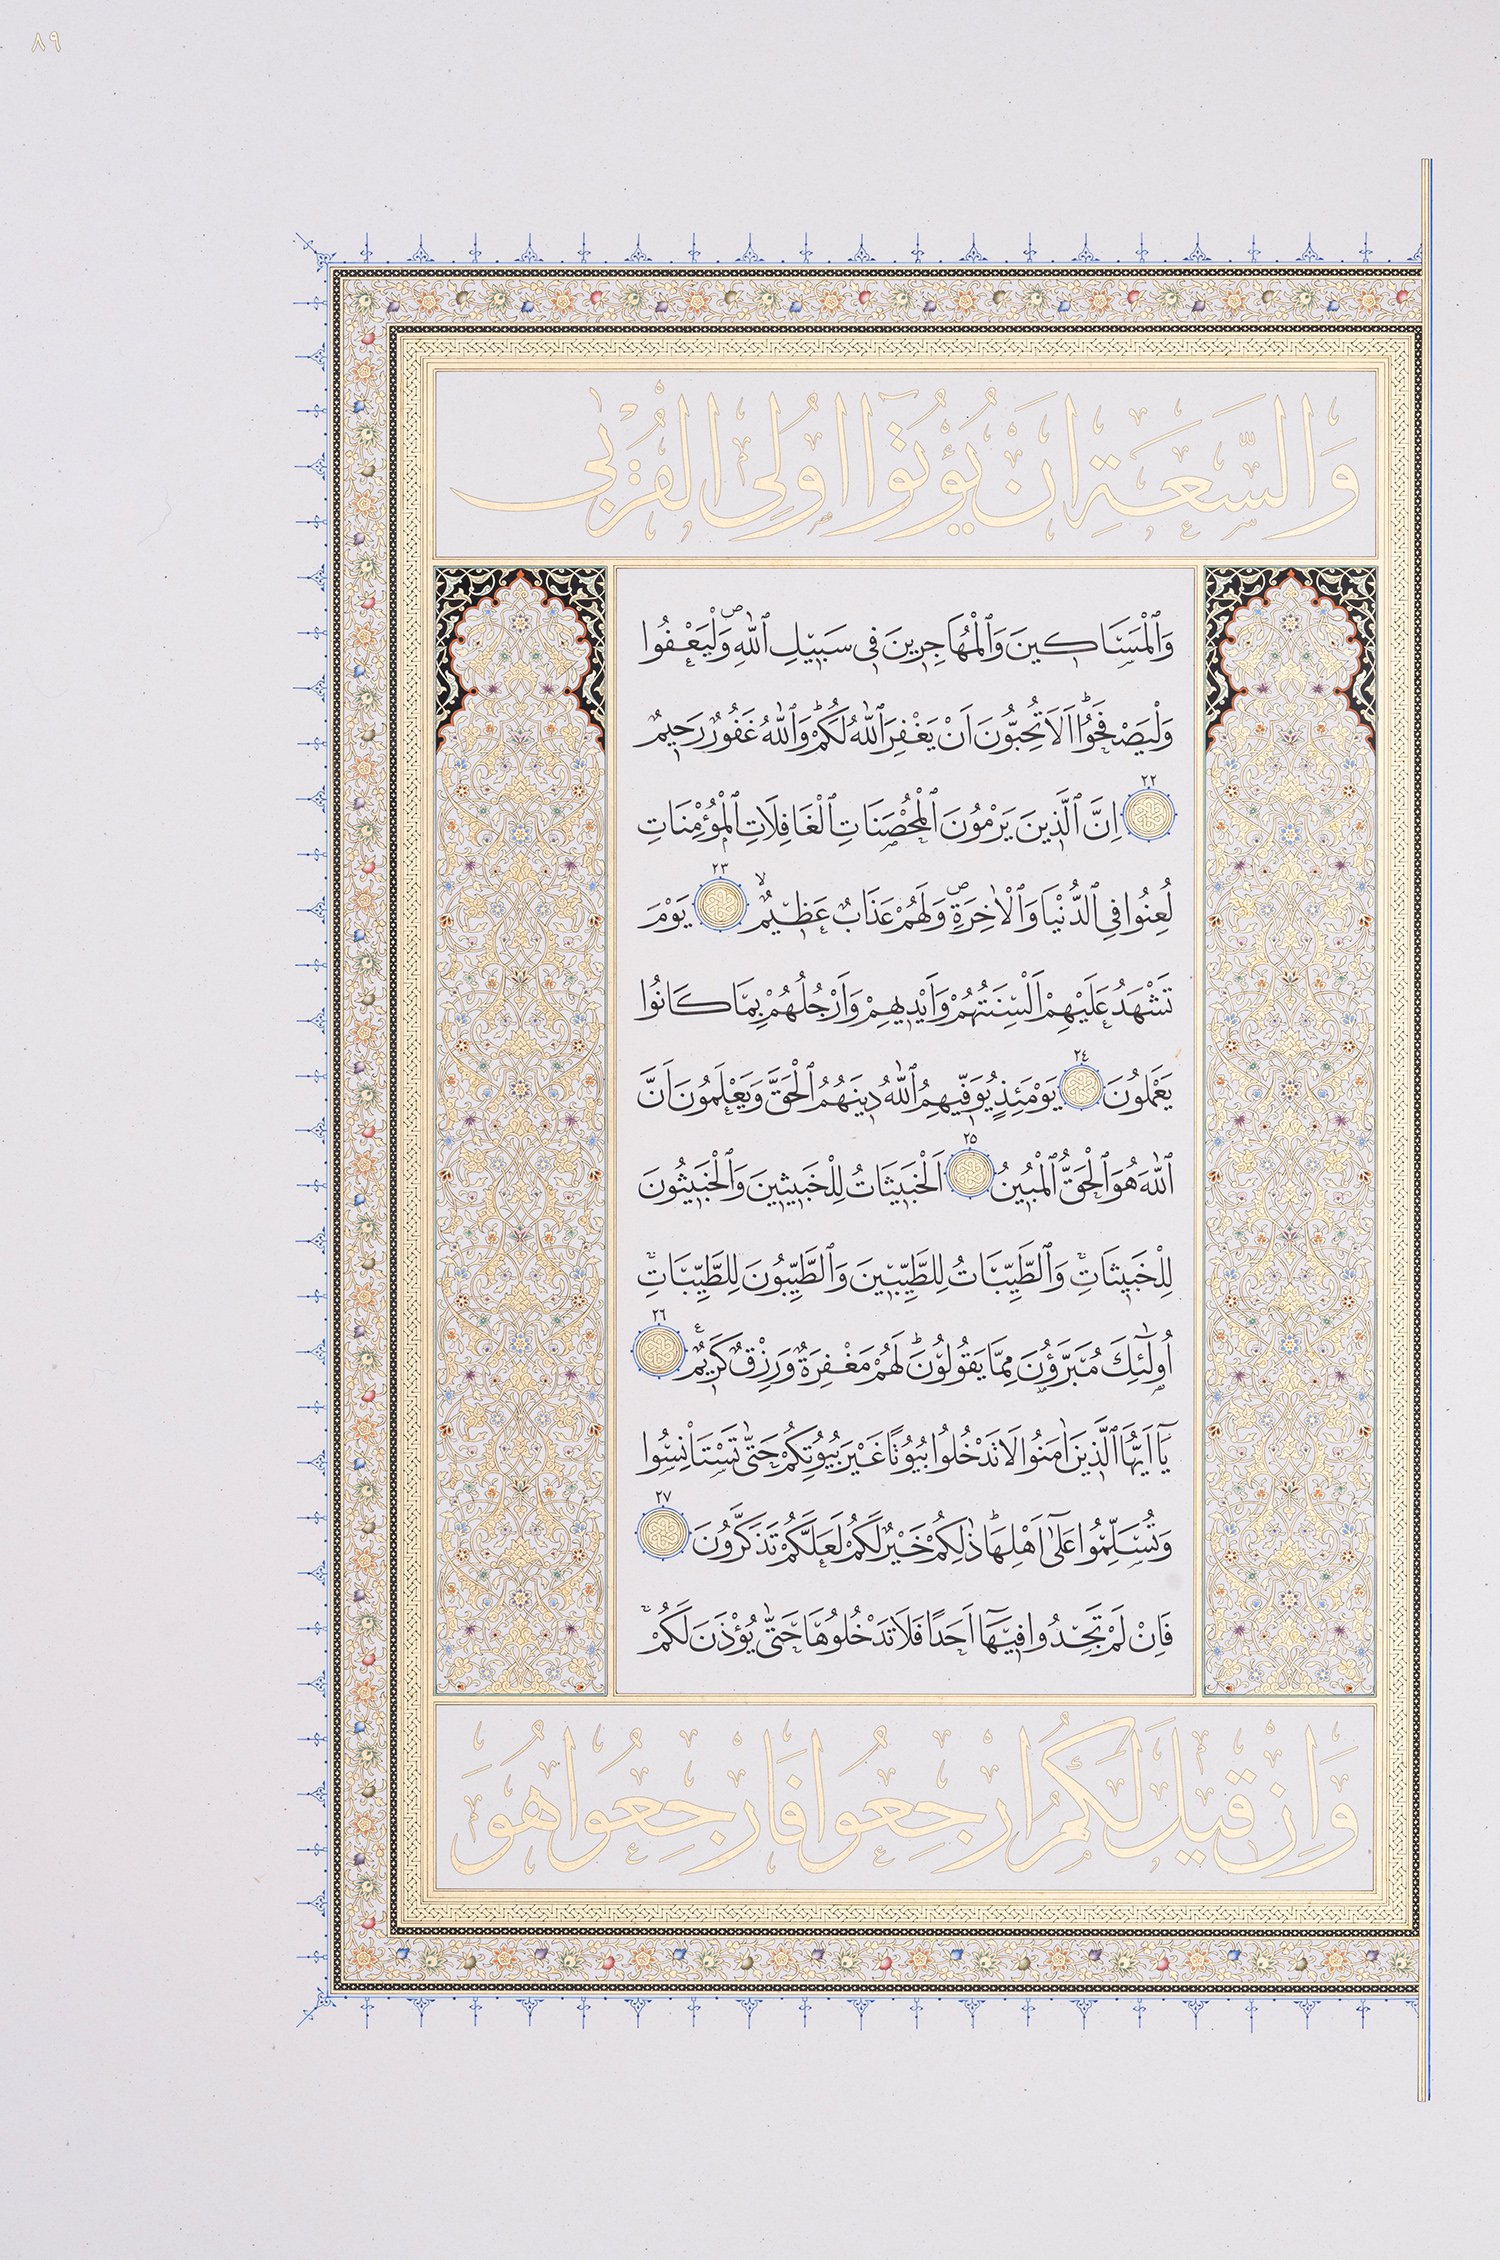 ٨٩
وَالسَّعَةِ اَنْ يُؤْتُٓوا اُو۬لِي الْقُرْبٰى
وَٱلْمَسَاك۪ينَ وَٱلْمُهَاجِر۪ينَ ف۪ي سَب۪يلِ ٱللّٰهِۖ وَلْيَعْفُوا
وَلْيَصْفَحُواۜ اَلَا تُحِبُّونَ اَنْ يَغْفِرَ ٱللّٰهُ لَكُمْۜ وَٱللّٰهُ غَفُورٌ رَح۪يمٌ
٢٢ اِنَّ ٱلَّذ۪ينَ يَرْمُونَ ٱلْمُحْصَنَاتِ ٱلْغَافِلَاتِ ٱلْمُؤْمِنَاتِ
لُعِنُوا فِي ٱلدُّنْيَا وَٱلْاٰخِرَةِۖ وَلَهُمْ عَذَابٌ عَظ۪يمٌۙ ٢٣ يَوْمَ
تَشْهَدُ عَلَيْهِمْ اَلْسِنَتُهُمْ وَاَيْد۪يهِمْ وَاَرْجُلُهُمْ بِمَا كَانُوا
يَعْمَلُونَ ٢٤ يَوْمَئِذٍ يُوَفّ۪يهِمُ ٱللّٰهُ د۪ينَهُمُ ٱلْحَقَّ وَيَعْلَمُونَ اَنَّ
ٱللّٰهَ هُوَ ٱلْحَقُّ ٱلْمُب۪ينُ ٢٥ اَلْخَب۪يثَاتُ لِلْخَب۪يث۪ينَ وَٱلْخَب۪يثُونَ
لِلْخَب۪يثَاتِۚ وَٱلطَّيِّبَاتُ لِلطَّيِّب۪ينَ وَٱلطَّيِّبُونَ لِلطَّيِّبَاتِۚ
اُو۬لٰٓئِكَ مُبَرَّؤُ۫نَ مِمَّا يَقُولُونَۜ لَهُمْ مَغْفِرَةٌ وَرِزْقٌ كَر۪يمٌ۟ ٢٦
يَٓا اَيُّهَا ٱلَّذ۪ينَ اٰمَنُوا لَا تَدْخُلُوا بُيُوتًا غَيْرَ بُيُوتِكُمْ حَتّٰى تَسْتَأْنِسُوا
وَتُسَلِّمُوا عَلٰٓى اَهْلِهَاۜ ذٰلِكُمْ خَيْرٌ لَكُمْ لَعَلَّكُمْ تَذَكَّرُونَ ٢٧
فَاِنْ لَمْ تَجِدُوا ف۪يهَٓا اَحَدًا فَلَا تَدْخُلُوهَا حَتّٰى يُؤْذَنَ لَكُمْۚ
وَاِنْ ق۪يلَ لَكُمُ ارْجِعُوا فَارْجِعُوا هُوَ